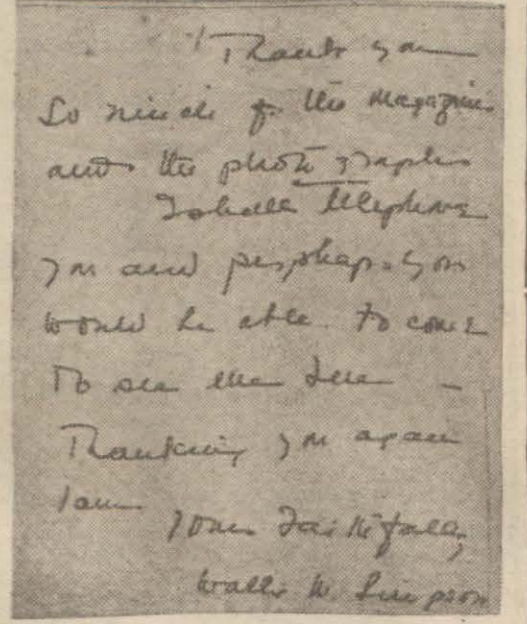 Thank you
So much for the magazine
and the photographs
I shall telephone
you and perphaps you
would be able to come
To see me here –
Thanking you again
I am
yours faithfully,
Wallis W. Simpson